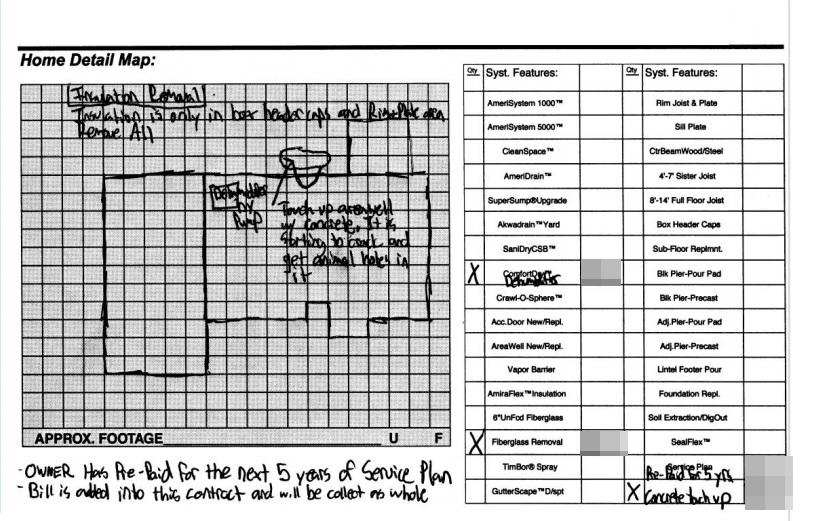 Home Detail Map:
Insulation Removal
Insulation is only in box header caps and Rim+Plate area
Remove All
Dehumidifier
w/
Pump
Touch up areawell
w/ concrete. It is
starting to crack and
get animal holes in
it
APPROX. FOOTAGE U F
- OWNER Has Pre-Paid for the next 5 years of Service Plan
- Bill is added into this contract and will be collect as whole
Qty Syst. Features:
AmeriSystem 1000™
AmeriSystem 5000™
CleanSpace™
AmeriDrain™
SuperSump®Upgrade
Akwadrain™Yard
SaniDryCSB™
X
Dehumidifier
Crawl-O-Sphere™
Acc.Door New/Repl.
AreaWell New/Repl.
Vapor Barrier
AmiraFlex™Insulation
6"UnFcd Fiberglass
X Fiberglass Removal
TimBor® Spray
GutterScape™D/spt
Qty Syst. Features:
Rim Joist & Plate
Sill Plate
CtrBeamWood/Steel
4'-7' Sister Joist
8'-14' Full Floor Joist
Box Header Caps
Sub-Floor Replmnt.
Blk Pier-Pour Pad
Blk Pier-Precast
Adj.Pier-Pour Pad
Adj.Pier-Precast
Lintel Footer Pour
Foundation Repl.
Soil Extraction/DigOut
SealFlex™
Service Plan
Pre-Paid for 5 yrs.
X Concrete touch up